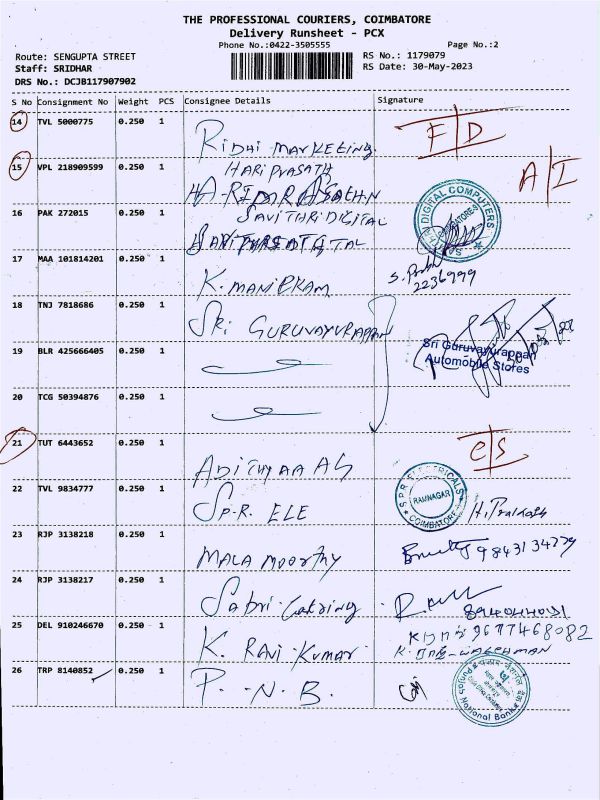 THE PROFESSIONAL COURIERS, COIMBATORE
Delivery Runsheet - PCX
Phone No.:0422-3505555 Page No.:2
Route: SENGUPTA STREET RS No.: 1179079
Staff: SRIDHAR RS Date: 30-May-2023
DRS No.: DCJB117907902
S No Consignment No Weight PCS Consignee Details Signature
14 TVL 5000775 0.250 1 Ridhi Marketing F/D
15 VPL 218909599 0.250 1 HARI PRASATH A/I
16 PAK 272015 0.250 1 SAVITHRI DIGITAL
DIGITAL COMPUTERS
17 MAA 101814201 0.250 1 K. MANIKKAM
2236999
18 TNJ 7818686 0.250 1 SRI GURUVAYURAPPAN
Sri Guruvayurappan
Automobile Stores
19 BLR 425666405 0.250 1
20 TCG 50394876 0.250 1
21 TUT 6443652 0.250 1 ADITHYAA AS C/S
22 TVL 9834777 0.250 1 SP.R. ELE
S.P.R. ELECTRICALS
RAMNAGAR
COIMBATORE
23 RJP 3138218 0.250 1 MALA MOORTHY 9843134779
24 RJP 3138217 0.250 1 Sabri Catering
25 DEL 910246670 0.250 1 K. RAVI KUMAR 9677468082
26 TRP 8140852 0.250 1 P. N. B.
Punjab National Bank